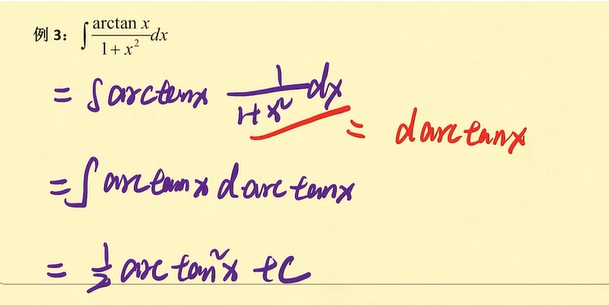 例 3： ∫ arctan x / (1+x²) dx
= ∫ arctan x 1/(1+x²) dx = d arctan x
= ∫ arctan x d arctan x
= 1/2 arctan²x + C